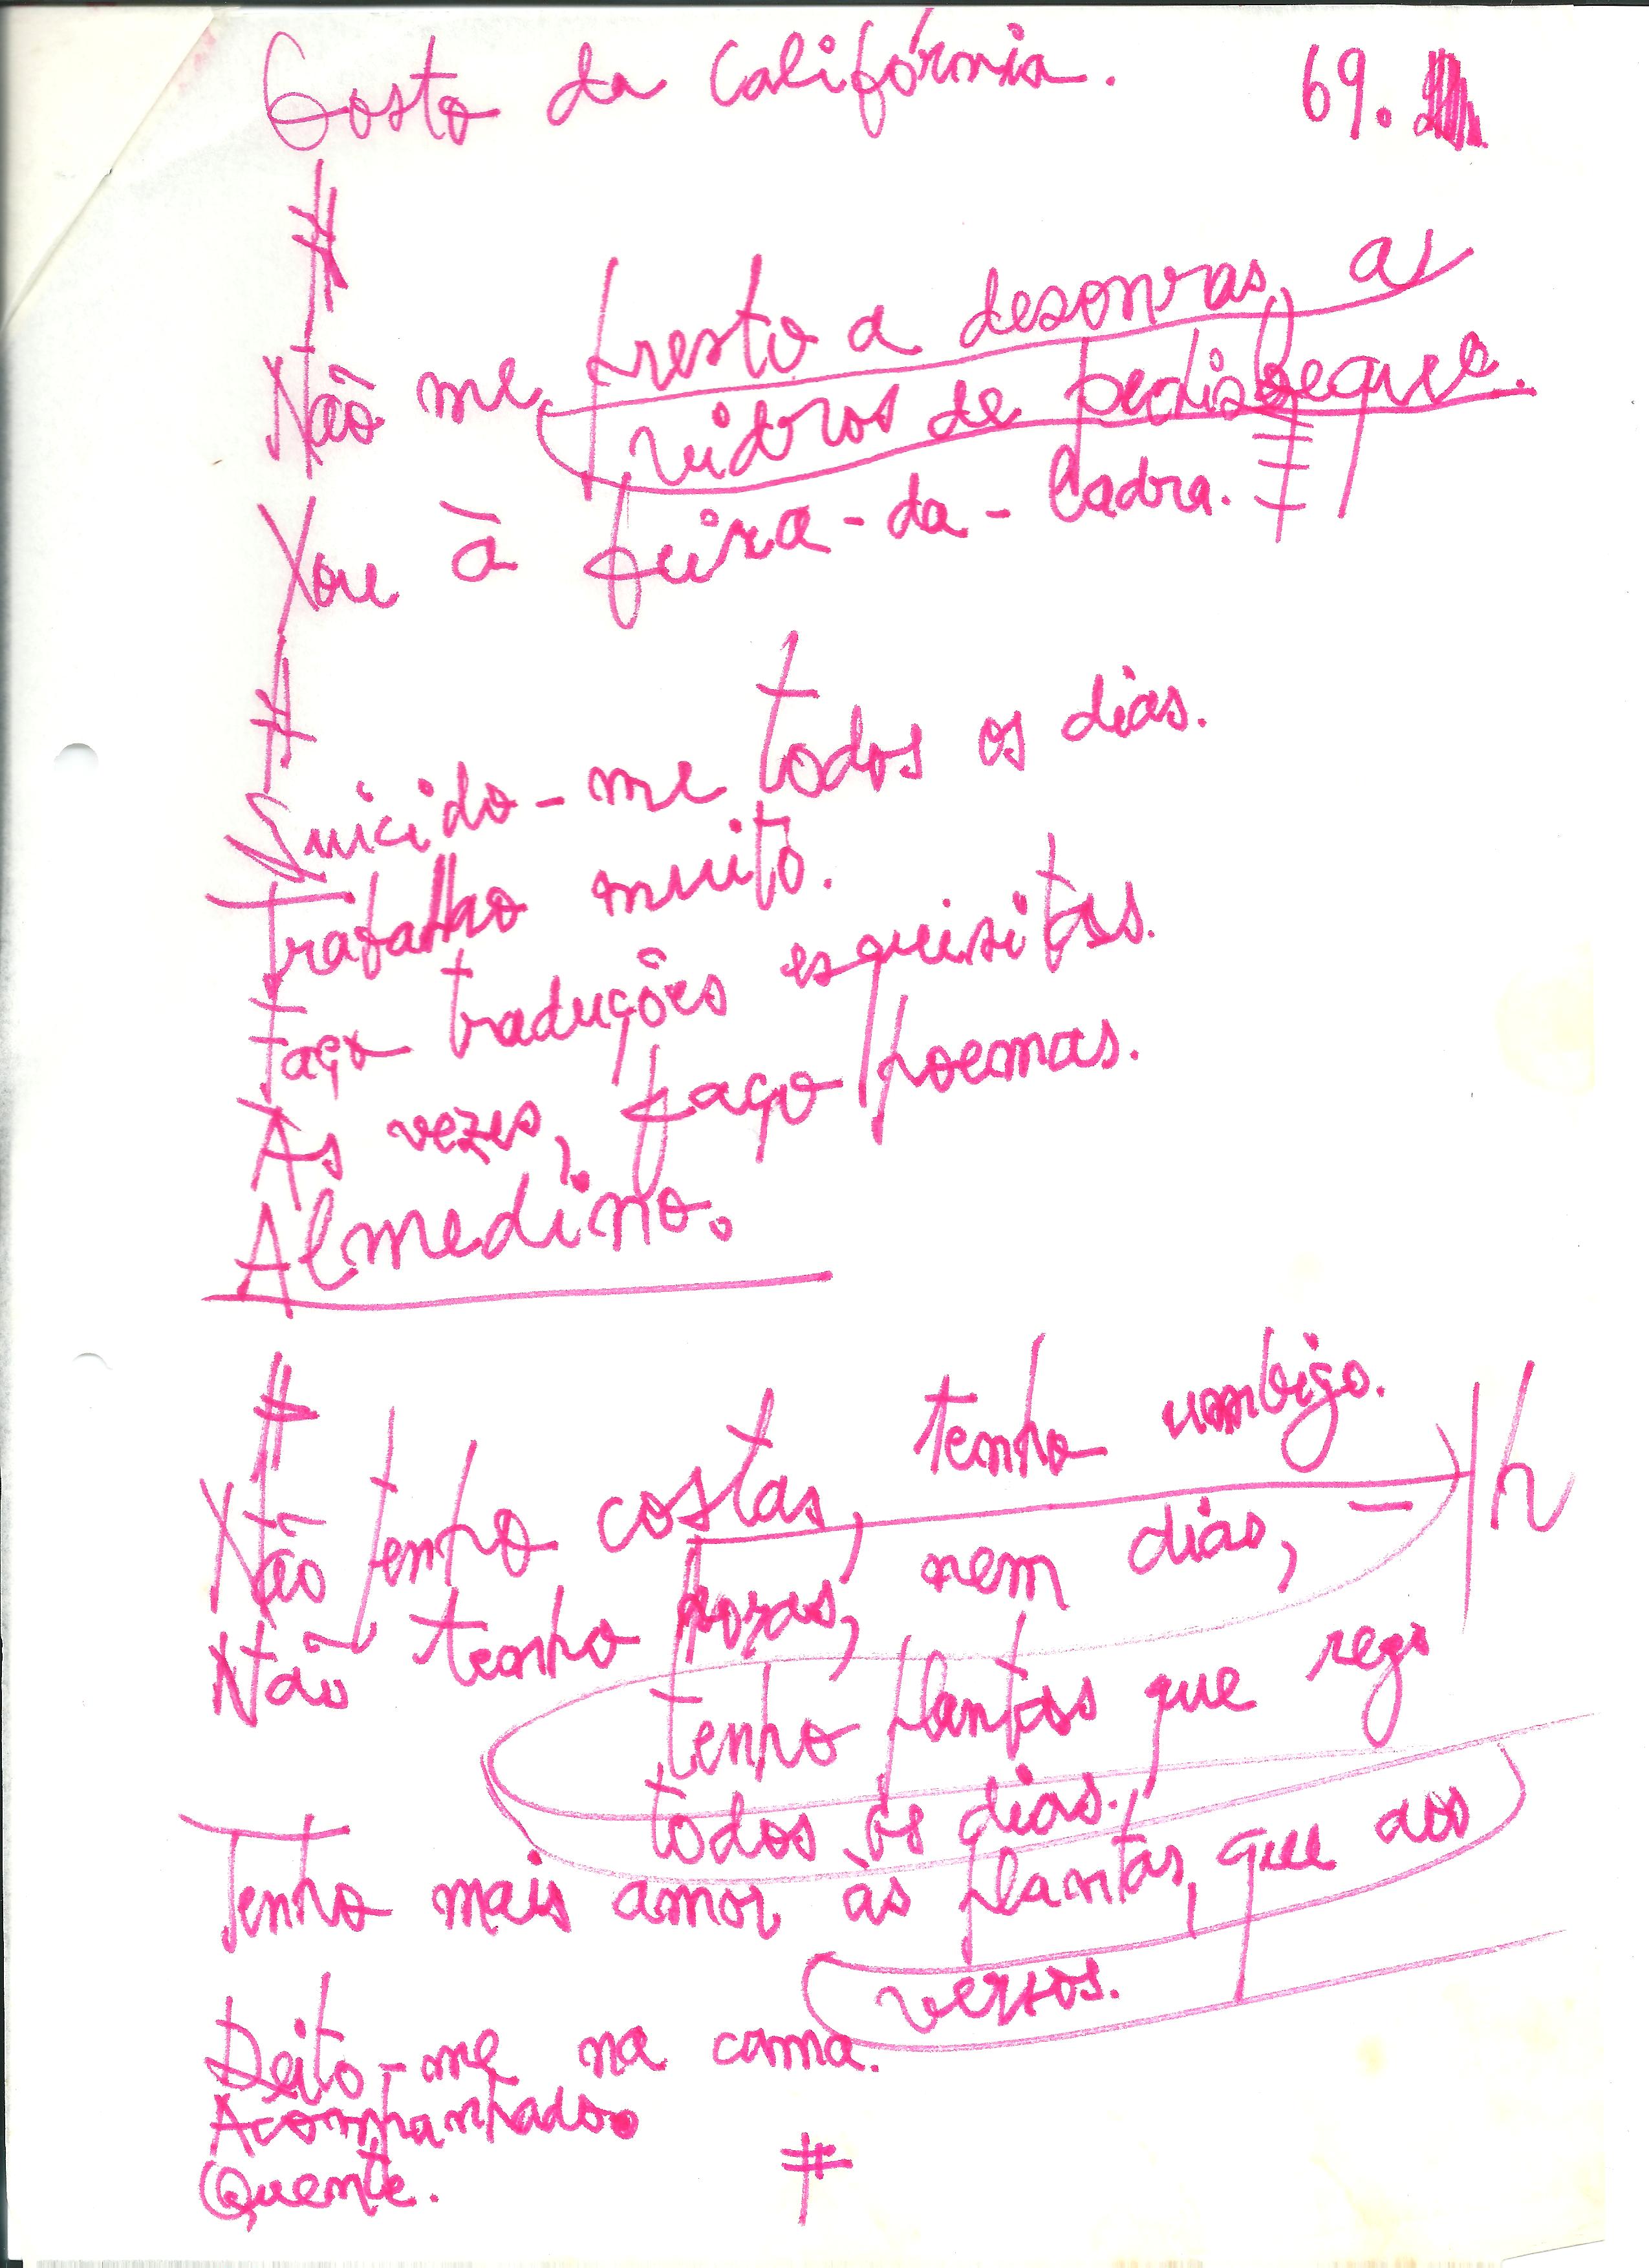 Gosto da Califórnia. 69.
#
Não me presto a desonras, a
vidros de pechisbeque.
Vou à feira-da-ladra.
#
Suicido-me todos os dias.
Trabalho muito.
Faço traduções esquisitas.
Às vezes, faço poemas.
Almedino.
#
Não tenho costas, tenho umbigo.
Não tenho horas, nem dias, – h
tenho plantas que rego
todos os dias.
Tenho mais amor às plantas, que aos
versos.
Deito-me na cama.
Acompanhado.
Quente.
#